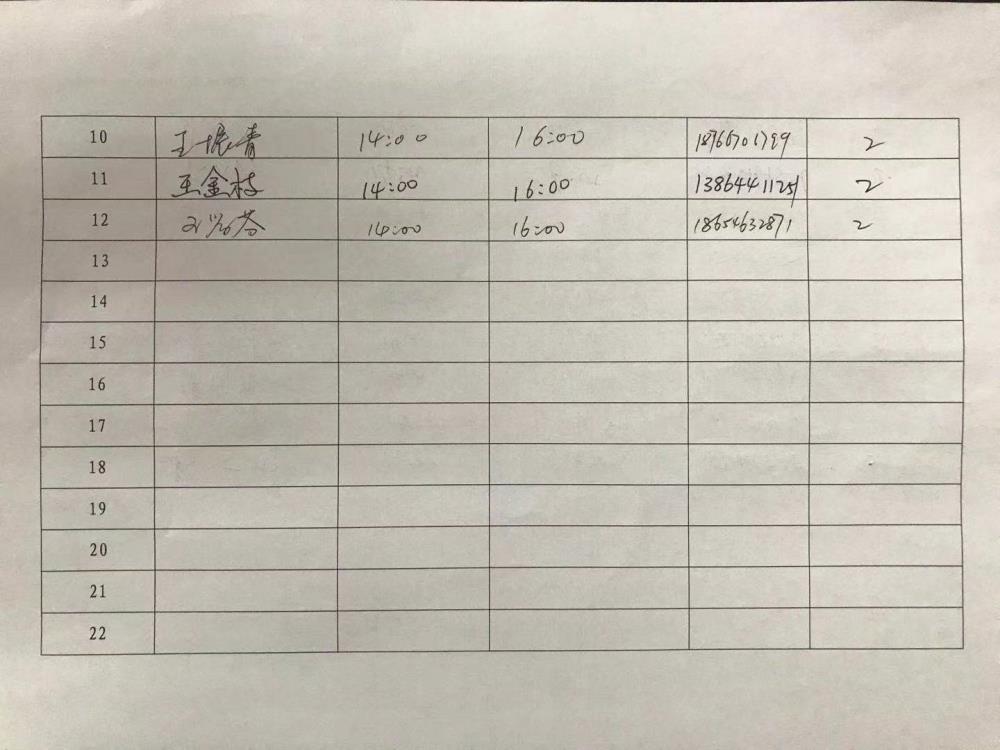 10 王振青 14:00 16:00 18766701799 2
11 王金枝 14:00 16:00 13864411251 2
12 14:00 16:00 18654632871 2
13
14
15
16
17
18
19
20
21
22